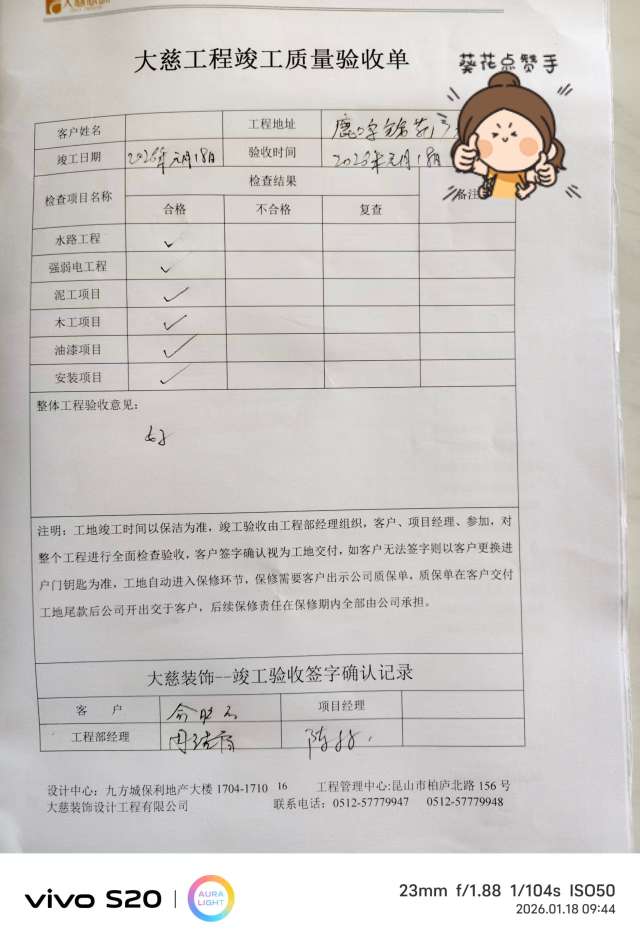 大慈工程竣工质量验收单
葵花点赞手
客户姓名 工程地址
竣工日期 2026年元月18日 验收时间 2026年元月18日
检查项目名称 检查结果 备注
合格 不合格 复查
水路工程 ✓
强弱电工程 ✓
泥工项目 ✓
木工项目 ✓
油漆项目 ✓
安装项目 ✓
整体工程验收意见：
好
注明：工地竣工时间以保洁为准，竣工验收由工程部经理组织，客户、项目经理、参加，对
整个工程进行全面检查验收，客户签字确认视为工地交付，如客户无法签字则以客户更换进
户门钥匙为准，工地自动进入保修环节，保修需要客户出示公司质保单，质保单在客户交付
工地尾款后公司开出交于客户，后续保修责任在保修期内全部由公司承担。
大慈装饰--竣工验收签字确认记录
客 户 项目经理
工程部经理
设计中心：九方城保利地产大楼 1704-1710 16 工程管理中心:昆山市柏庐北路 156 号
大慈装饰设计工程有限公司 联系电话：0512-57779947 0512-57779948
vivo S20 | AURA LIGHT
23mm f/1.88 1/104s ISO50
2026.01.18 09:44